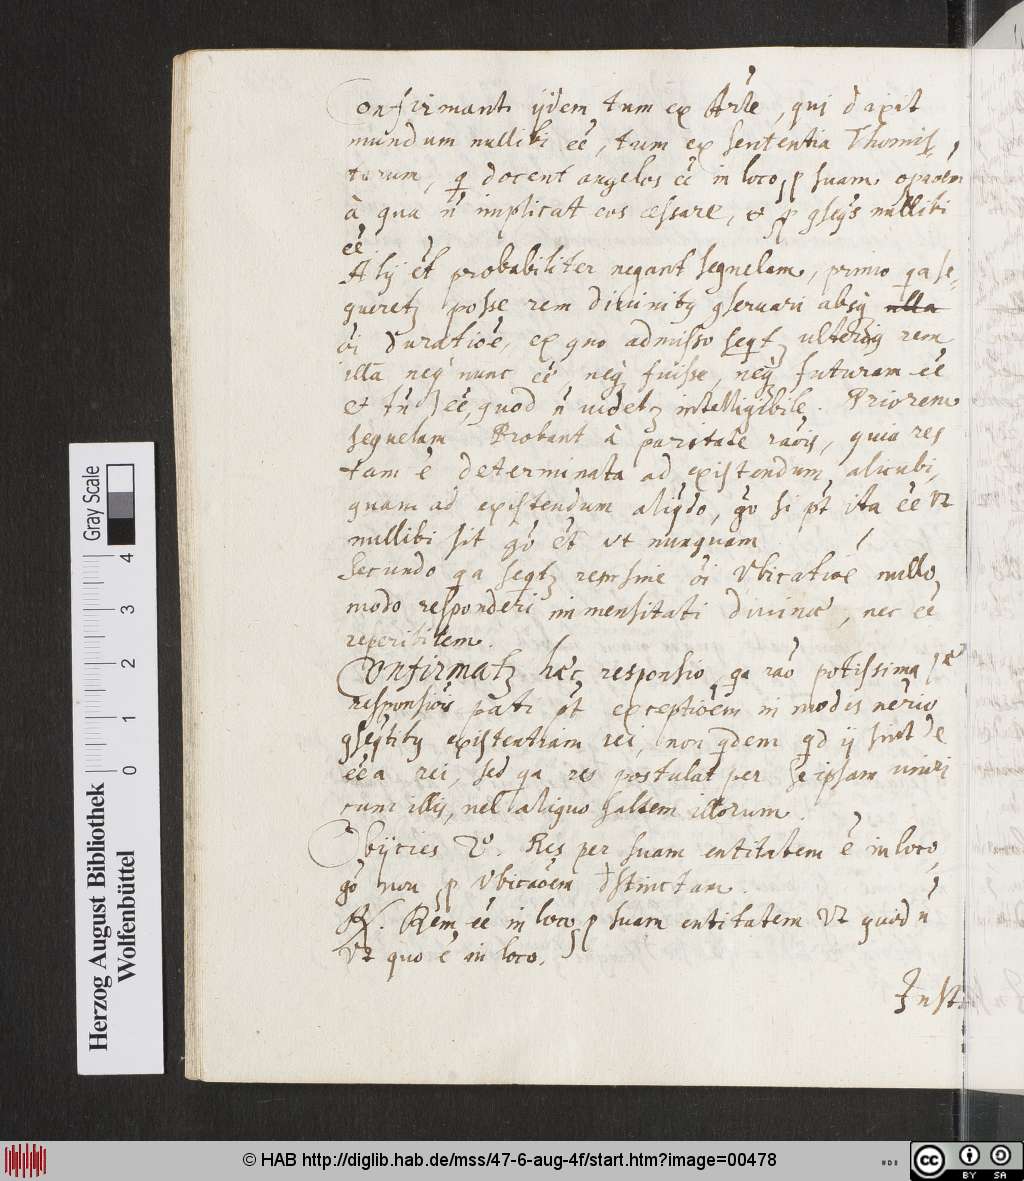 Confirmant ijdem tum ex Arle, qui dixit
mundum nullibi eē, tum ex sententia Thomis-
tarum, q docent angelos eē in loco p suam opaōem
à qua ñ implicat eos cessare, et p gseqs nullibi
eē
Alij ēt probabiliter negant sequelam, primo qa se-
queretz posse rem divinity gservari absq ulla
oi duratiōe, ex quo admisso seqtz ulteriq rem
illā neq nunc eē, neq fuisse, neq futuram eē
et tñ eē, quod ñ videtz intelligibile. Priorem
sequelam Probant à paritate raōis, quia res
tam ē determinata ad existendum alicubi,
quam ad existendum aliqdo, gō si pt ita eē vt
nullibi sit gō ēt vt nunquam
Secundo qa seqtz rem sine oi Vbicatiōe nullo
modo responderi immensitati divinæ, nec eē
reperibilem.
Confirmatz hæc responsio, qa raō potissima 1æ
responsiōis pati pt exceptiōem in modis neriō
gseqtity existentiam rei, non qdem qd ij sint de
eēa rei, sed qa res postulat per se ipsam uniri
cum illis, vel aliquo saltem illorum.
Obijcies 2º. Res per suam entitatem ē in loco,
gō non p Vbicaōem dstinctam.
R. Rem eē in loco p suam entitatem vt quod ñ
vt quo ē in loco.
Inst.
Herzog August Bibliothek
Wolfenbüttel
Gray Scale
0 1 2 3 4
© HAB http://diglib.hab.de/mss/47-6-aug-4f/start.htm?image=00478
cc BY SA